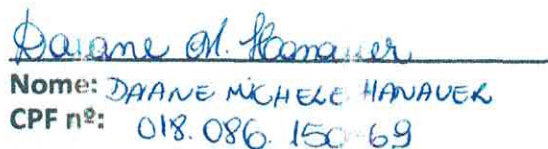 Daiane M. Hanauer
Nome: DAANE MICHELE HANAUER
CPF nº: 018.086.150-69